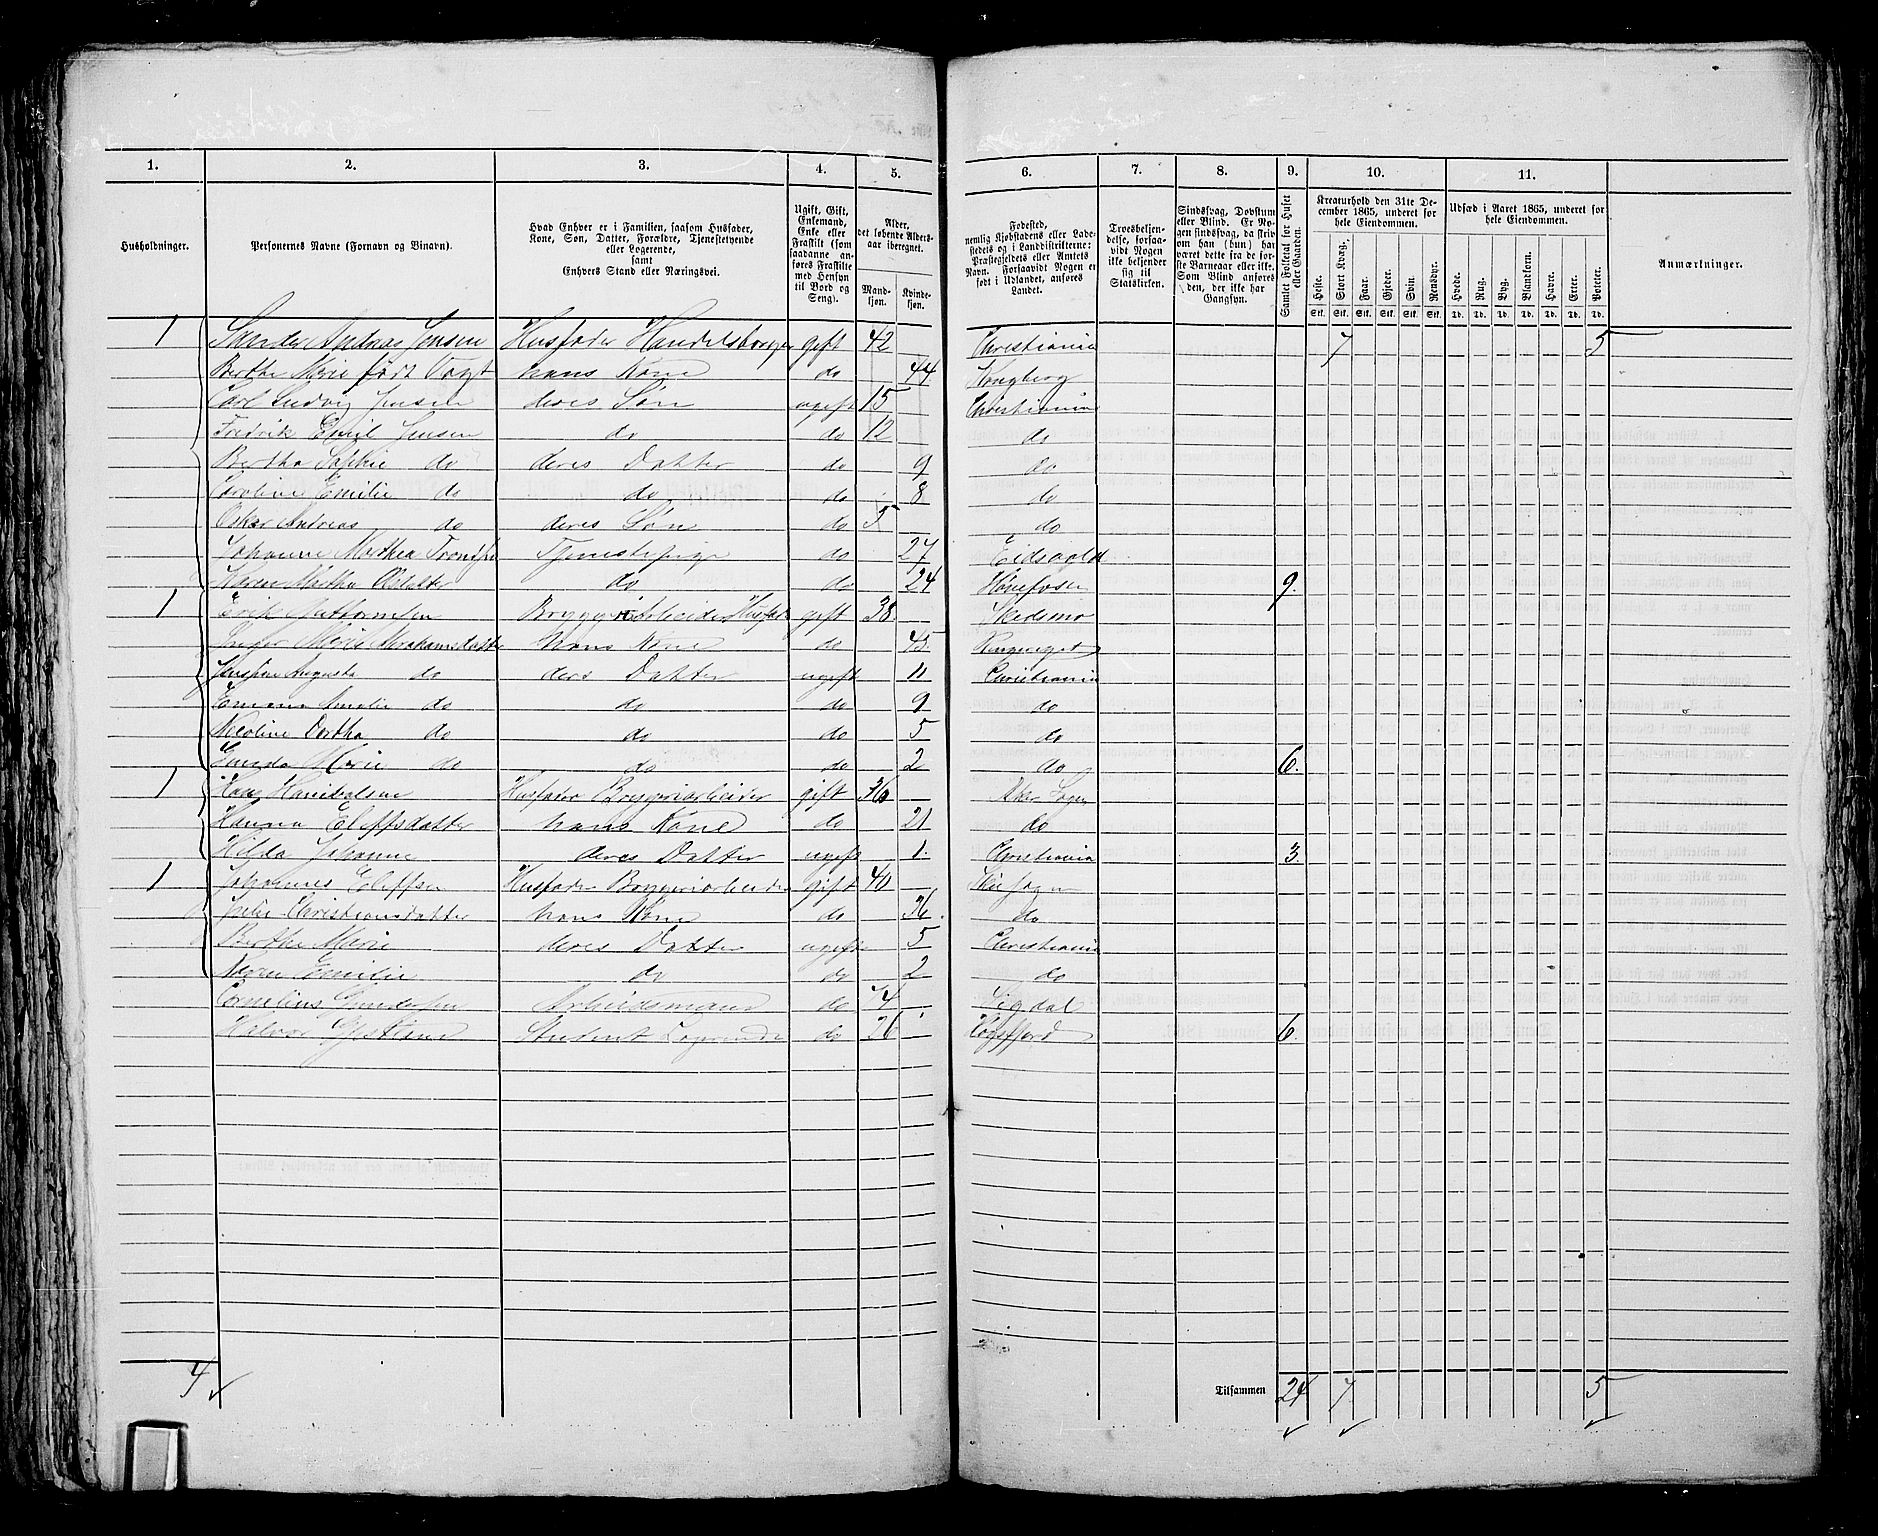 1. 2. 3. 4. 5. 6. 7. 8. 9. 10. 11.
Husholdninger.
Personernes Navne (Fornavn og Binavn).
Hvad Enhver er i Familien, saasom Husfader,
Kone, Søn, Datter, Forældre, Tjenestetyende
eller Logerende,
samt
Enhvers Stand eller Næringsvei.
Ugift, Gift,
Enkemand,
Enke eller
Fraskilt (som
saadanne an-
føres Fraskilte
med Hensyn
til Bord og
Seng).
Alder,
det løbende Alders-
aar iberegnet.
Mand-
kjøn.
Kvinde-
kjøn.
Fødested,
nemlig Kjøbstadens eller Lade-
stedets og i Landdistrikterne:
Præstegjeldets eller Amtets
Navn. Forsaavidt Nogen er
født i Udlandet, anføres
Landet.
Troesbekjen-
delse, forsaa-
vidt Nogen
ikke bekjender
sig til
Statskirken.
Sindssvag, Døvstum
eller Blind. Er No-
gen sindssvag, da skriv
om han (hun) har
været dette fra de før-
ste Barneaar eller ikke.
Som Blind anføres
den, der ikke har
Gangsyn.
Samlet Folketal for Huset
eller Gaarden.
Kreaturhold den 31te De-
cember 1865, underet for
hele Eiendommen.
Heste. Stort Kvæg. Faar. Gjeder. Svin. Rensdyr.
Stk. Stk. Stk. Stk. Stk. Stk.
Udsæd i Aaret 1865, underet for
hele Eiendommen.
Hvede. Rug. Byg. Blandkorn. Havre. Erter. Poteter.
Td. Td. Td. Td. Td. Td. Td.
Anmærkninger.
1 Sander Andreas Jensen Husfader Handelsborger gift 42 Christiania 7 5
Berthe Marie født Vogt hans Kone do 44 Kongberg
Carl Ludvig Jensen deres Søn ugift 15 Christiania
Fredrik Emil Jensen do do 12 do
Bertha Sophie do deres Datter do 9 do
Caroline Emilie do do do 8 do
Oskar Andreas do deres Søn do 5 do
Johanne Marthea Tjenestepige do 27 Eidsvold
Karen Martha do do 24 Hønefosen 9.
1 Erik Bryggeriarbeider Husfader gift 38 Skedsmo
Inger Marie Abrahamsdatter hans Kone do 45 Ringeriget
Augusta do ders Datter ugift 11 Christiania
Emma Amalie do do do 9 do
Nicoline Dorthea do do do 5 do
Marie do do do 2 do 6.
1 Hans Hanibalsen Husfader Bryggeriarbeider gift 36 Aker Sogn
Hanna Eleffsdatter hans Kone do 21 do
Hilda Johanne deres Datter ugift 1 Christiania 3.
1 Johannes Eleffsen Husfader Bryggeriarbeider gift 40 Sogn
Julie Christiansdatter hans Kone do 36 do
Berthe Marie deres Datter ugift 5 Christiania
Karen Emilie do do 2 do
Cornelius Gundersen Arbeidsmand do 74 Sigdal
Halvor Student Logerende do 26 6.
4
Tilsammen 24 7 5